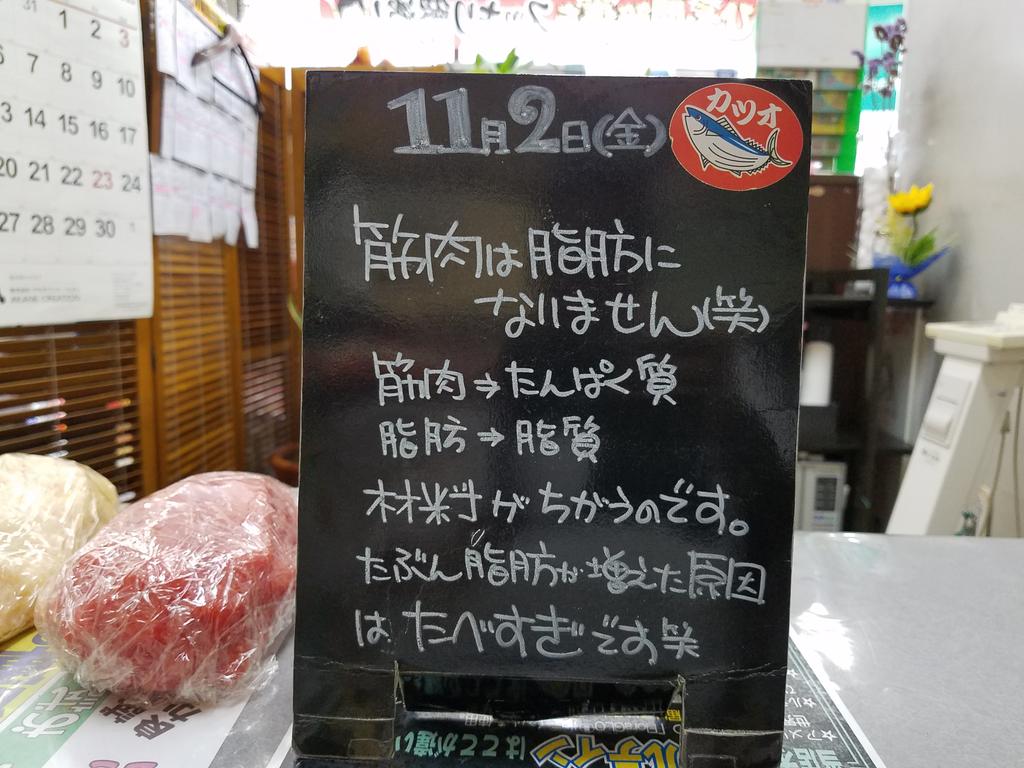 11月2日(金)
カツオ
筋肉は脂肪に
なりません(笑)
筋肉→たんぱく質
脂肪→脂質
材料がちがうのです。
たぶん脂肪が増えた原因
はたべすぎです笑
31
1 2 3
6 7 8 9 10
13 14 15 16 17
20 21 22 23 24
27 28 29 30 1
はここが違い